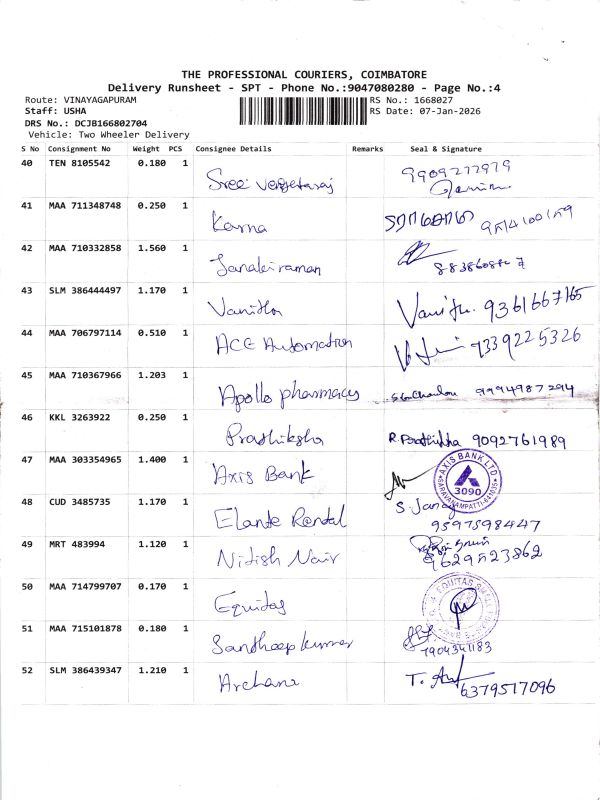 THE PROFESSIONAL COURIERS, COIMBATORE
Delivery Runsheet - SPT - Phone No.:9047080280 - Page No.:4
Route: VINAYAGAPURAM RS No.: 1668027
Staff: USHA RS Date: 07-Jan-2026
DRS No.: DCJB166802704
Vehicle: Two Wheeler Delivery
S No Consignment No Weight PCS Consignee Details Remarks Seal & Signature
40 TEN 8105542 0.180 1 Sree 9909277979
41 MAA 711348748 0.250 1 Karna
42 MAA 710332858 1.560 1 Janakiraman
43 SLM 386444497 1.170 1 Vanitha 9361667165
44 MAA 706797114 0.510 1 ACE Automation 9339225326
45 MAA 710367966 1.203 1 Apollo pharmacy 9994987294
46 KKL 3263922 0.250 1 Prathiksha R. Prathiksha 9092761989
47 MAA 303354965 1.400 1 Axis Bank AXIS BANK LTD 3090 SARAVANAMPATTI-641035
48 CUD 3485735 1.170 1 Elante Rental S. Janag
9597598447
49 MRT 483994 1.120 1 Nitish Nair 9629523862
50 MAA 714799707 0.170 1 Equitas EQUITAS SMALL
51 MAA 715101878 0.180 1 Sandheep kumar 7904341183
52 SLM 386439347 1.210 1 Archana T. 6379517096